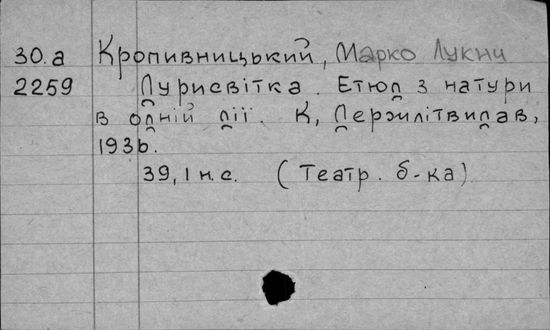 30.а Кропивницький, Марко Лукич
2259 Дурисвітка. Етюд з натури
в одній дії. К, Держлітвидав,
1936.
39, 1 н.с. (Театр. б-ка)